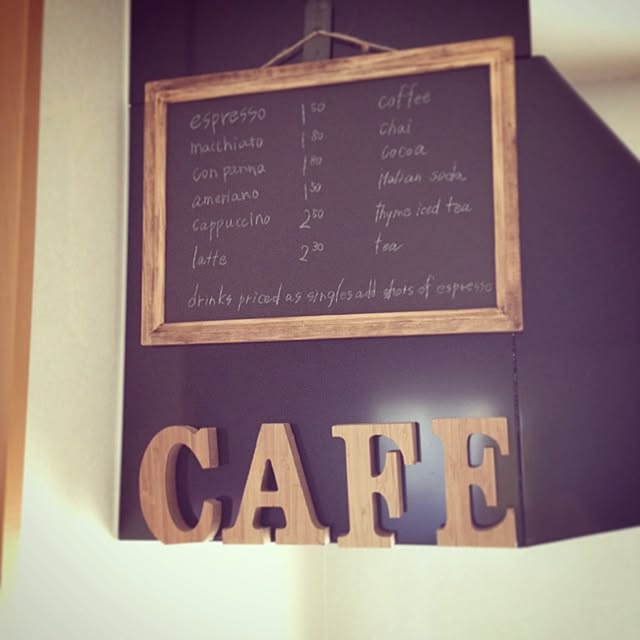 espresso 1 50 coffee
macchiato 1 80 chai
con panna 1 80 cocoa
ameriano 1 50 italian soda
cappuccino 2 50 thyme iced tea
latte 2 30 tea
drinks priced as singles add shots of espresso
CAFE